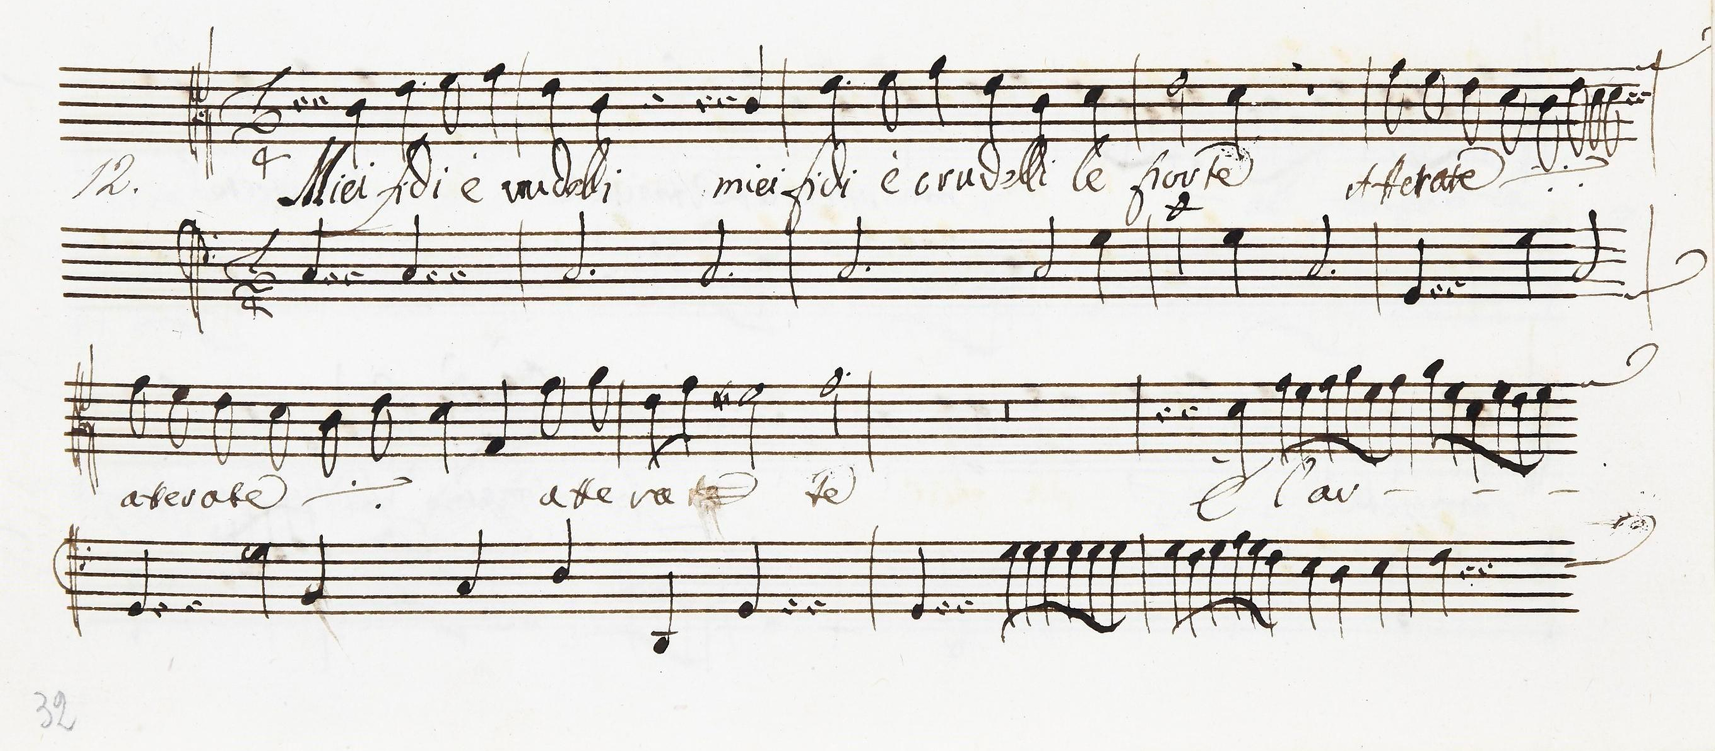 12. Miei fidi è crudeli miei fidi è crudelli le fiorte Atterate
aterate atte ra te
È l'ar - - -
32